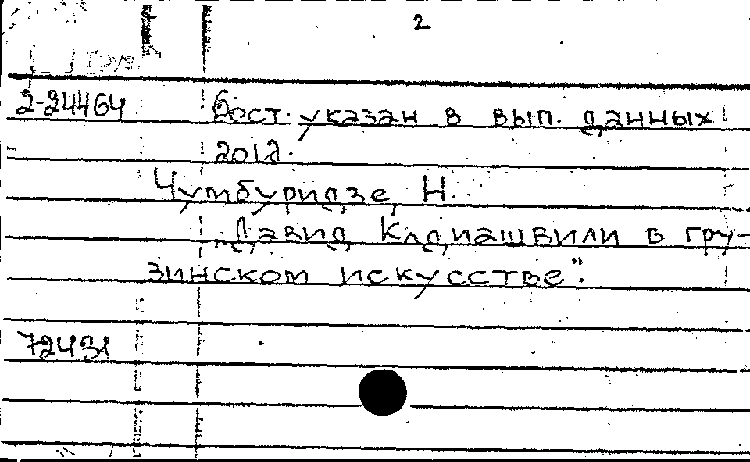 2
2-24464 Сост. указан в вып. данных
Чумбуридзе, Н.
"Давид Клдиашвили в гру-
зинском искусстве".
72431